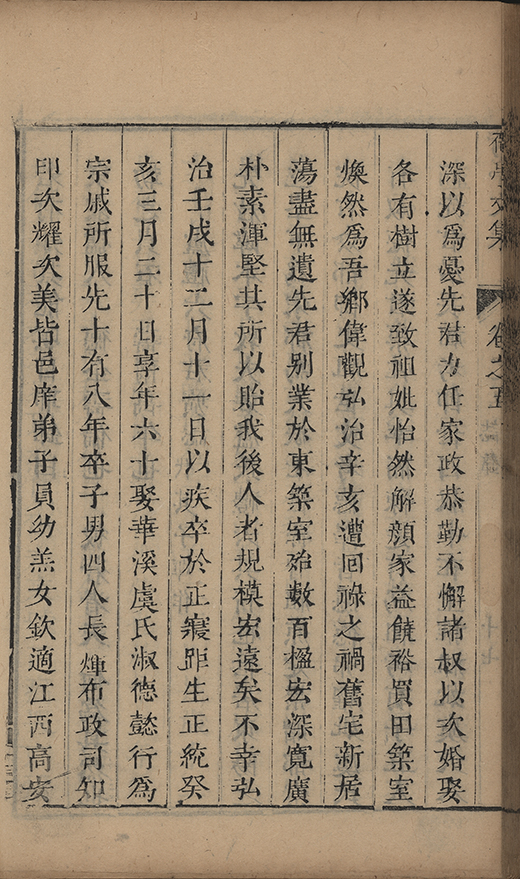 文集 卷之五
深以為憂先君力任家政恭勤不懈諸叔以次婚娶
各有樹立遂致祖妣怡然解顏家益饒裕買田築室
煥然為吾鄉偉觀弘治辛亥遭回祿之禍舊宅新居
蕩盡無遺先君别業於東築室殆數百楹宏深寬廣
朴素渾堅其所以貽我後人者規模宏遠矣不幸弘
治壬戌十二月十一日以疾卒於正寢距生正統癸
亥三月二十日享年六十娶華溪虞氏淑德懿行為
宗戚所服先十有八年卒子男四人長煇布政司知
印次耀次美皆邑庠弟子員幼羔女欽適江西高安